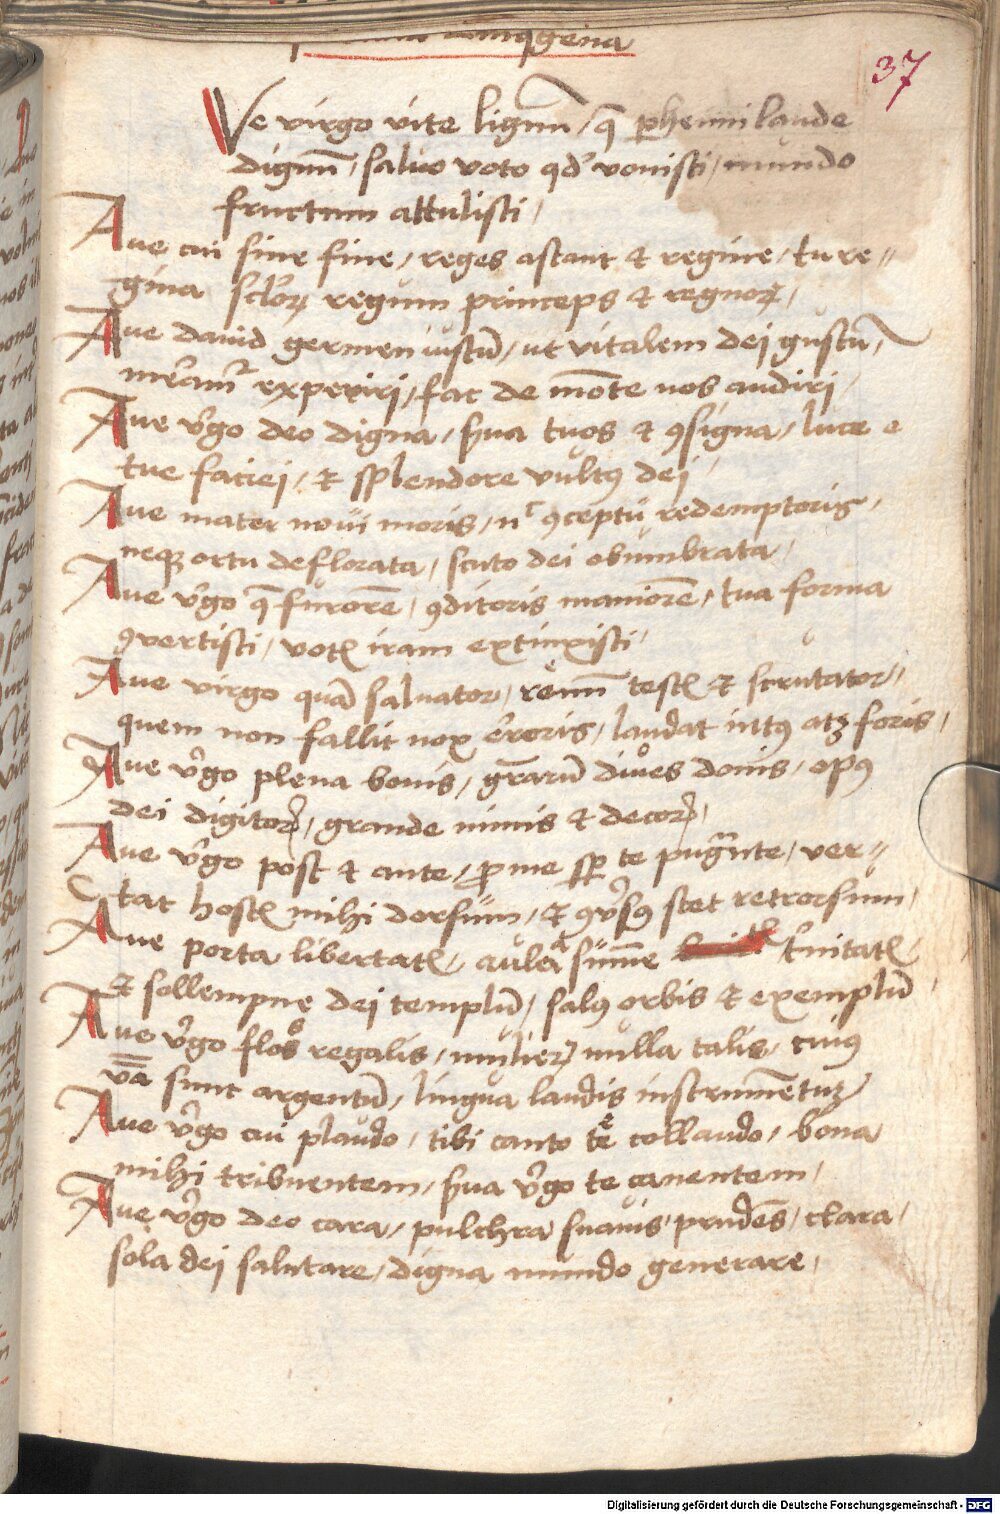 quingena
37
Ve virgo vite lignū, q̄ ꝑhenni laude
dignū, salvo voto qd' vovisti, mundo
fructum attulisti,
Aue cui sine fine, reges astant & regine, tu re=
gina sctōꝝ regum princeps & regnoꝝ,
Aue dauid germen iustū, ut vitalem dei gustū,
mer̄amr̄ experiri, fac de mōte nos audiri,
Aue v̄go deo digna, s̄ua tuos & ꝯsigna, luce
tue faciei, & splendore vultꝰ dei,
Aue mater novi moris, nc̄ ꝯceptū redemptoris,
neqꝫ ortu deflorata, scuto dei obumbrata,
Aue v̄go q̄ furorē, ꝯditoris maniorē, tua forma
ꝯvertisti, votꝭ iram extinxisti,
Aue virgo quā salvator, renū testꝭ & scrutator,
quem non fallit nox ēroris, laudat intꝰ atqꝫ foris,
Aue v̄go plena bonis, gr̄arū diues donis, opꝰ
dei digitoꝝ, grande nimis & decoꝝ,
Aue v̄go post & ante, ꝓ me sp̄ te pugn̄te, ver=
tat hostꝭ mihi dorsum, & ꝯv̄sꝰ stet retrorsum,
Aue porta libertatꝭ, aula sūme t'nitatꝭ
& sollempne dei templū, salꝰ orbis & exemplū
Aue v̄go flos regalis, mulieꝝ nulla talis, cuiꝰ
v̄a sunt argentū, lingua laudis instrumētuꝫ
Aue v̄go cui plaudo, tibi canto te collaudo, bona
mihi tribuentem, s̄ua v̄go te canentem,
Aue v̄go deo cara, pulchra suavis, prudēs, clara,
sola dei salutare, digna mundo generare,
Digitalisierung gefördert durch die Deutsche Forschungsgemeinschaft - DFG